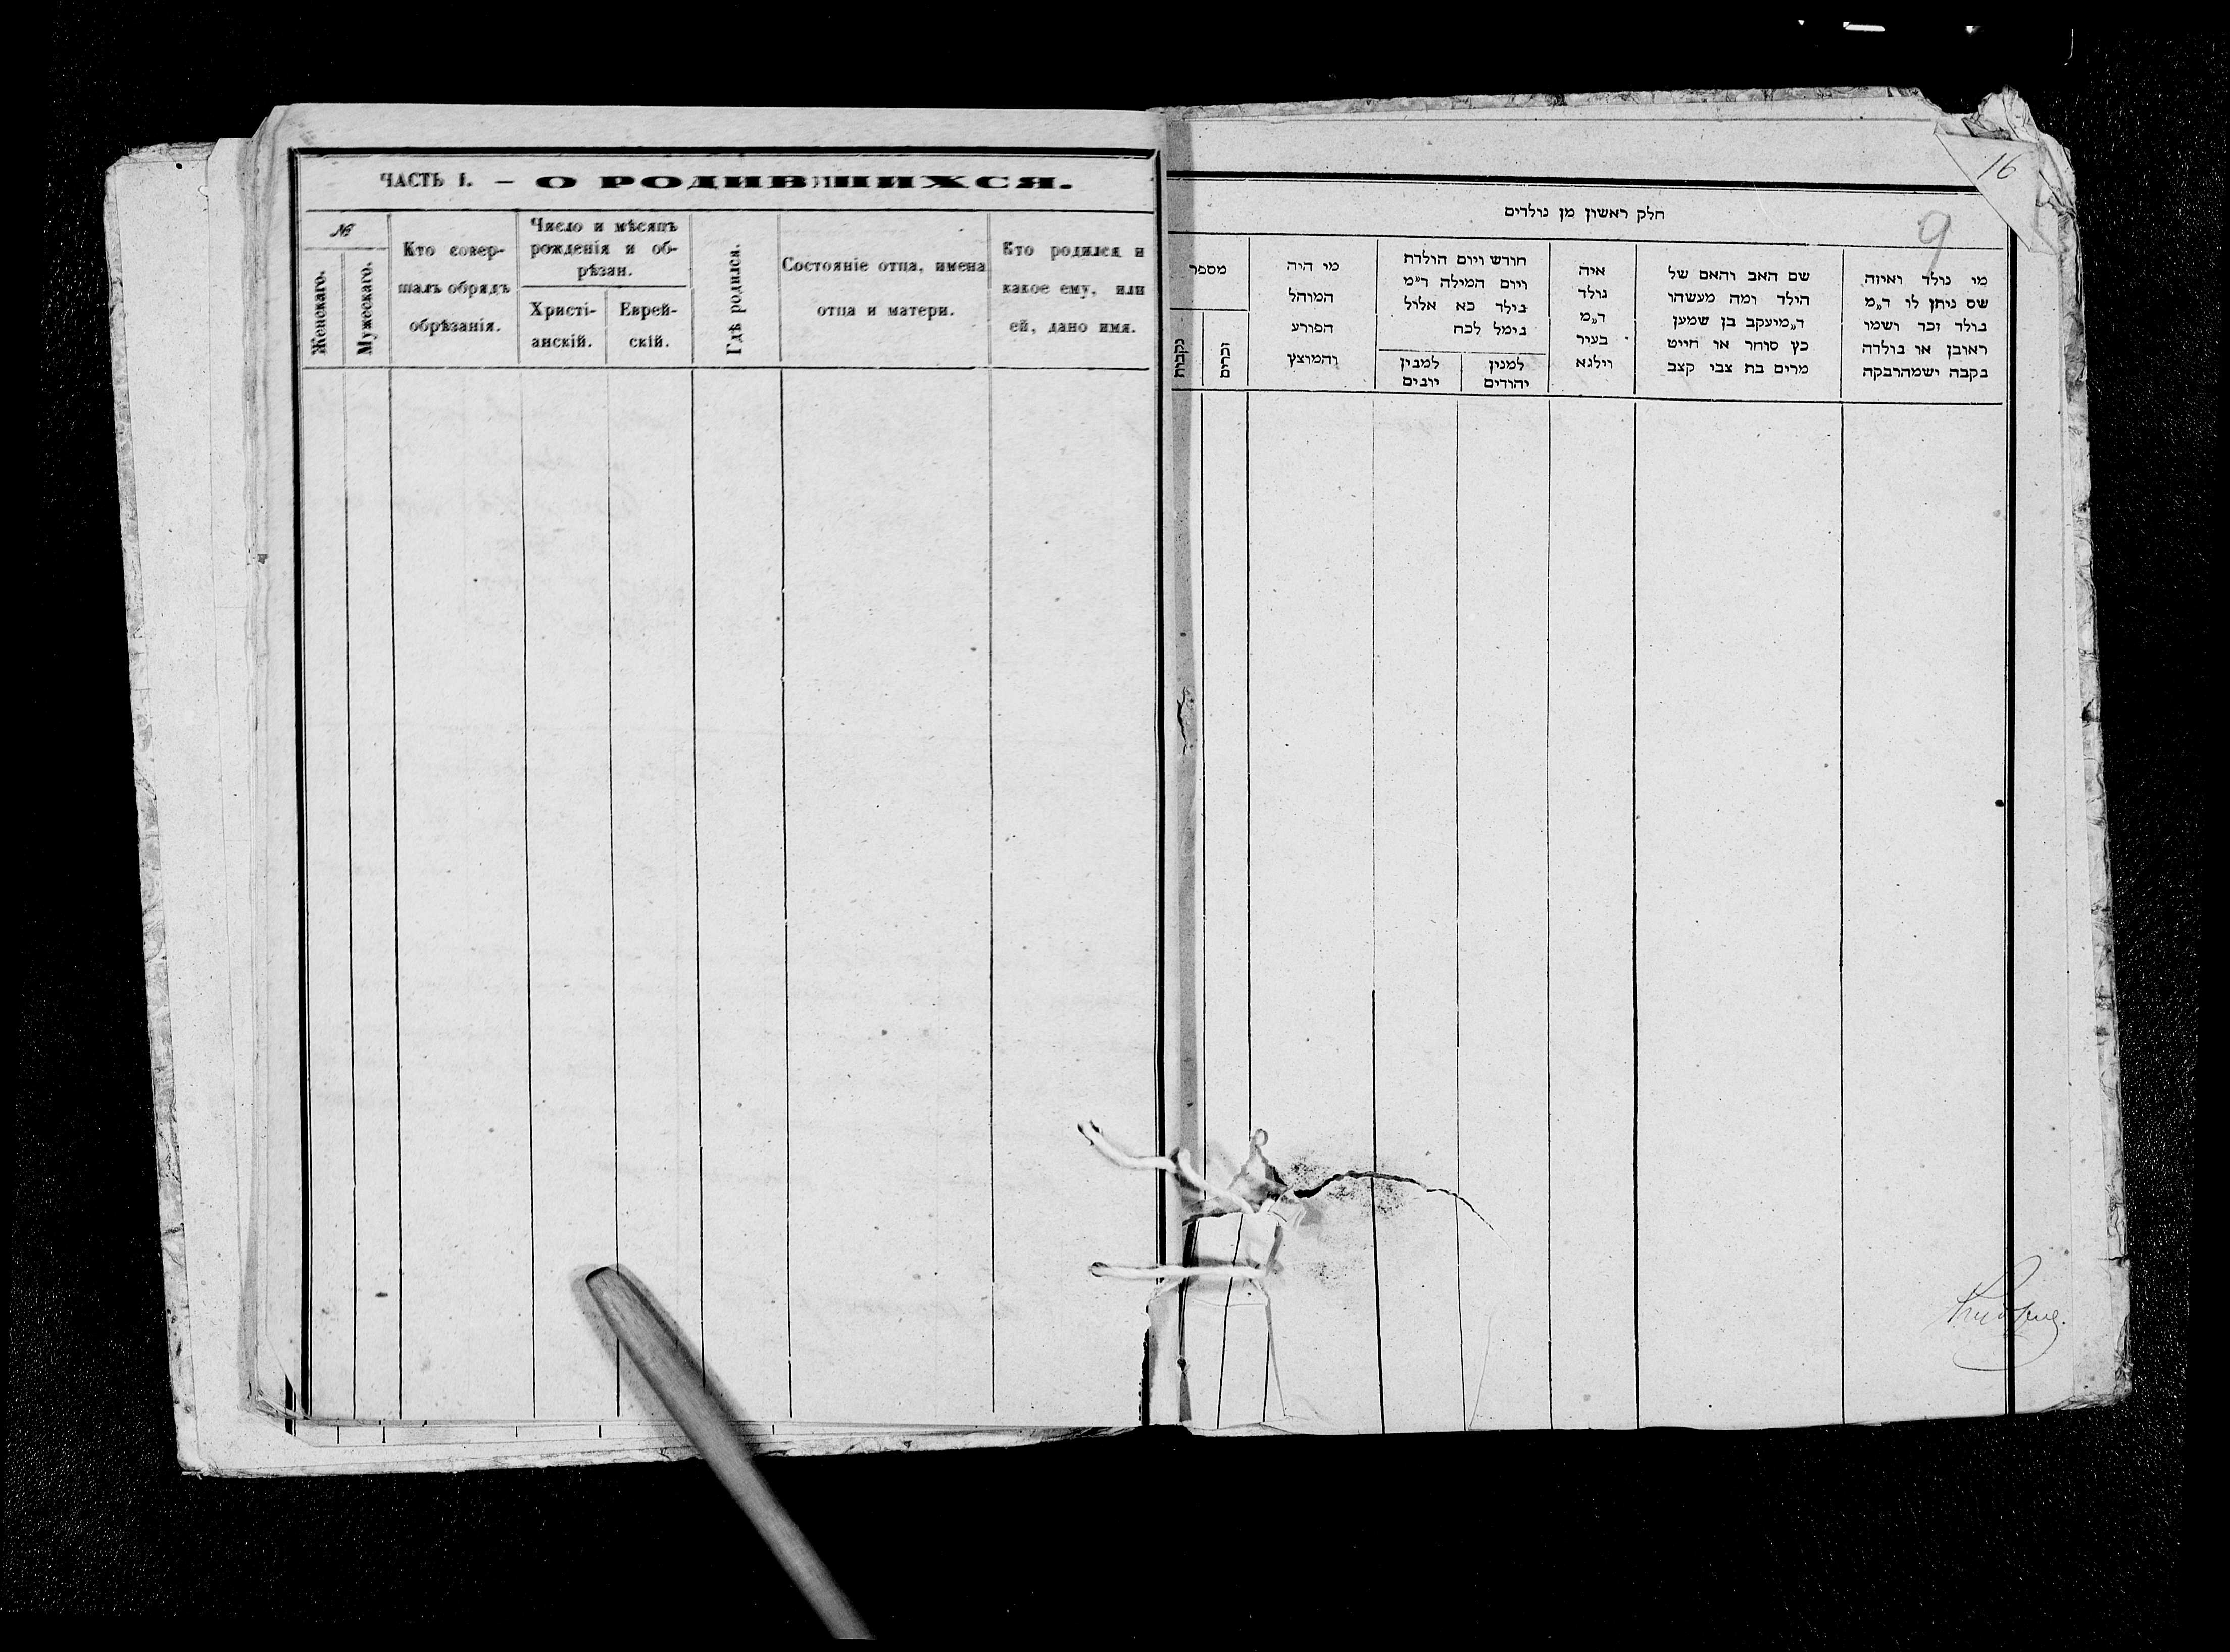 ЧАСТЬ I. – О РОДИВШИХСЯ.
№
Женскаго.
Мужескаго.
Кто совер-
шалъ обрядъ
обрѣзанія.
Число и мѣсяцъ
рожденія и об-
рѣзан.
Христі-
анскій.
Еврей-
скій.
Гдѣ родился.
Состояніе отца, имена
отца и матери.
Кто родился и
какое ему, или
ей, дано имя.
16
9
חלק ראשון מן נולדים
מי נולד ואיזה
שם ניתן לו ד״מ
נולד זכר ושמו
ראובן או נולדה
נקבה ישמהרבקה
שם האב והאם של
הילד ומה מעשהו
ד״מיעקב בן שמען
כץ סוחר או חייט
מרים בת צבי קצב
איה
נולד
ד״מ
בעיר
ווילנא
חודש ויום הולדת
ויום המילה ד״מ
נילד כא אלול
נימל לכח
למנין
יהודים
למנין
יונים
מי היה
המוהל
הפורע
והמוצץ
מספר
זכרים
נקבות